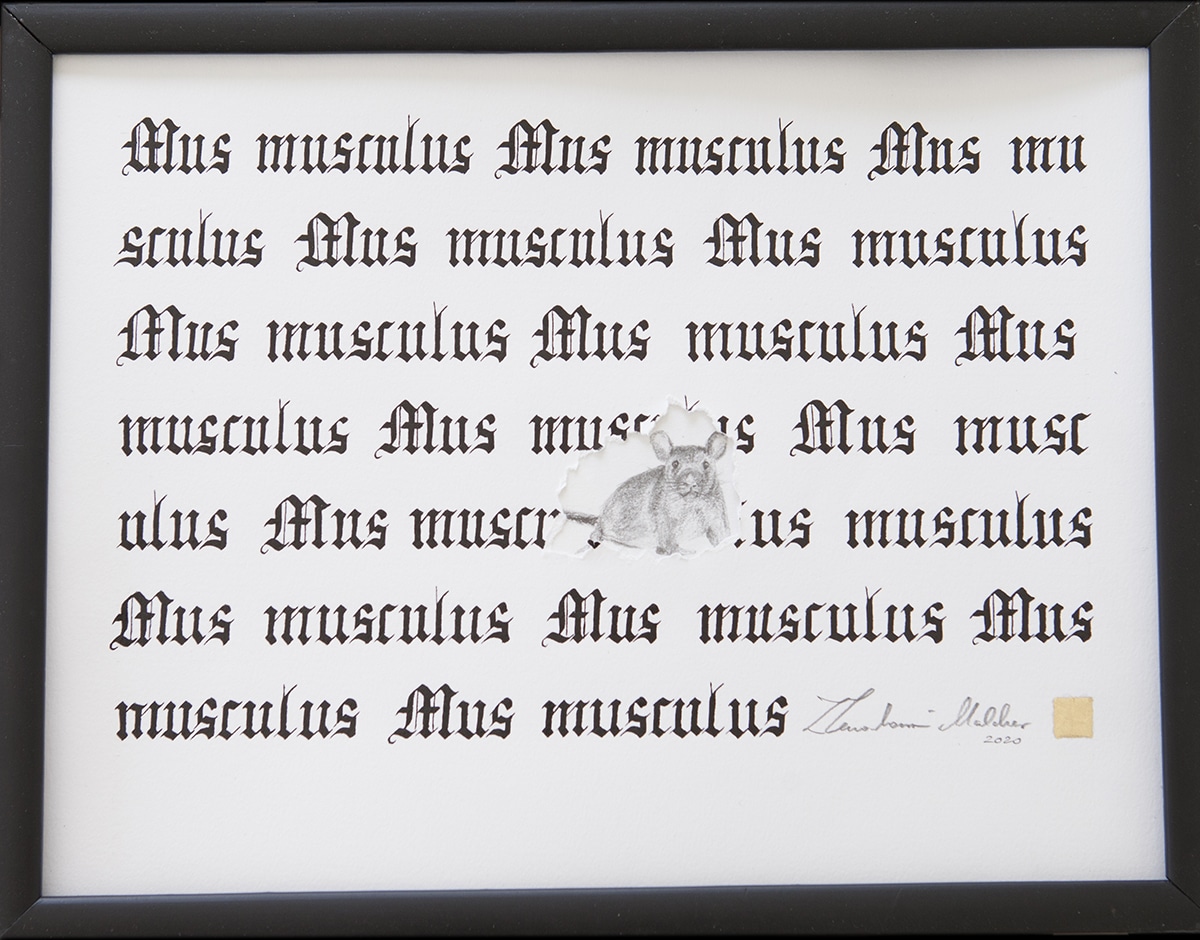 Mus musculus Mus musculus Mus mu
sculus Mus musculus Mus musculus
Mus musculus Mus musculus Mus
musculus Mus musculus Mus musc
ulus Mus muscu us musculus
Mus musculus Mus musculus Mus
musculus Mus musculus
2020